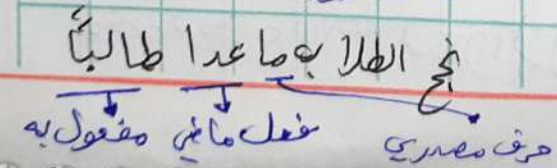 نجح الطلاب ما عدا طالبًا
حرف مصدري فعل ماضي مفعول به